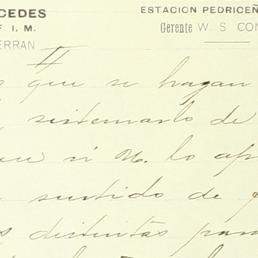 CEDES
ESTACION PEDRICEÑ
F. I. M.
Gerente W. S CON
ERRAN
II
que se hagan
sistemarlo de
si U. lo ap
surtido de
distintas para